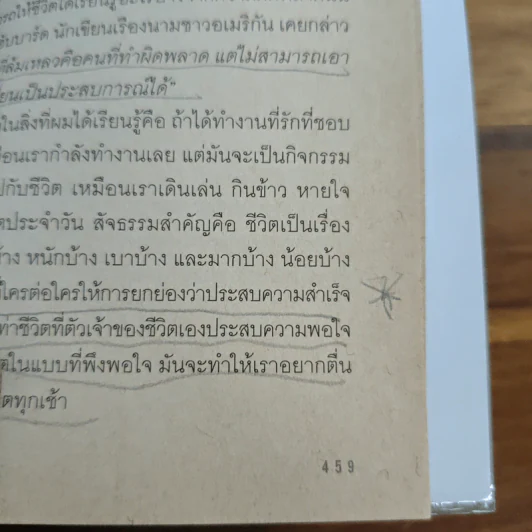 ให้ชีวิตได้เรียนรู้
ับบาร์ด นักเขียนเรืองนามชาวอเมริกัน เคยกล่าว
ล้มเหลวคือคนที่ทำผิดพลาด แต่ไม่สามารถเอา
เป็นประสบการณ์ได้"
ในสิ่งที่ผมได้เรียนรู้คือ ถ้าได้ทำงานที่รักที่ชอบ
อนเรากำลังทำงานเลย แต่มันจะเป็นกิจกรรม
ปกับชีวิต เหมือนเราเดินเล่น กินข้าว หายใจ
ตประจำวัน สัจธรรมสำคัญคือ ชีวิตเป็นเรื่อง
้าง หนักบ้าง เบาบ้าง และมากบ้าง น้อยบ้าง
ี่ใครต่อใครให้การยกย่องว่าประสบความสำเร็จ
ท่าชีวิตที่ตัวเจ้าของชีวิตเองประสบความพอใจ
อในแบบที่พึงพอใจ มันจะทำให้เราอยากตื่น
ตทุกเช้า
459